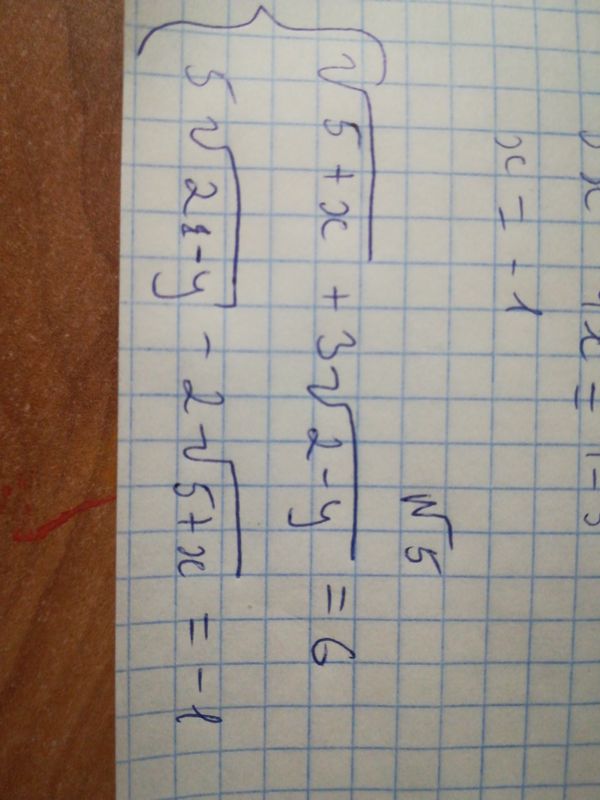 x = -1
№5
√(5+x) + 3√(2-y) = 6
5√(2-y) - 2√(5+x) = -1